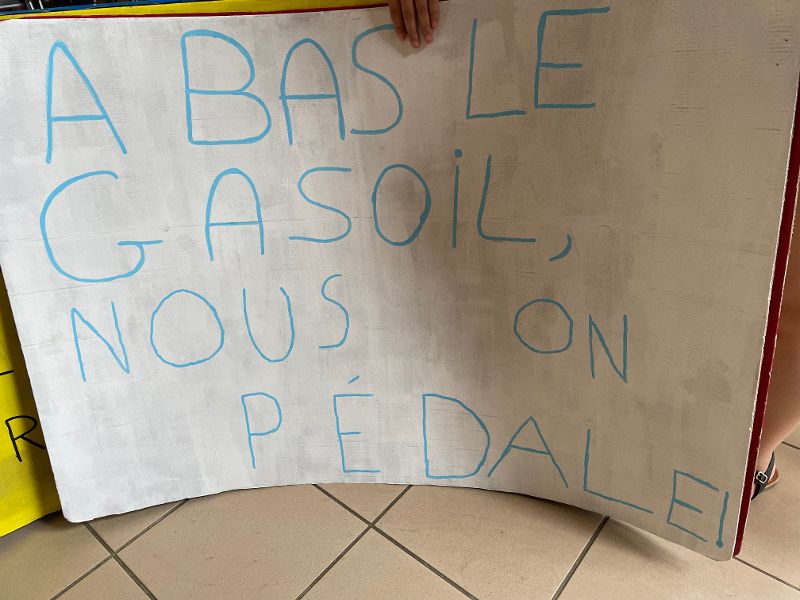 A BAS LE
GASOiL,
NOUS ON
PÉDALE!
R